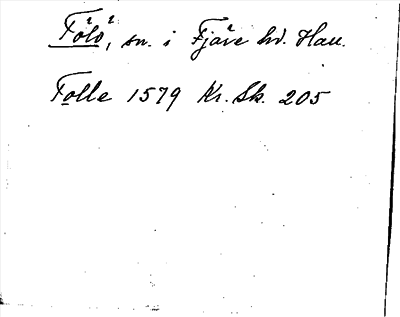 Fölö, sn. i Fjäre hd. Hall.
Folle 1579 Kr. Sk. 205